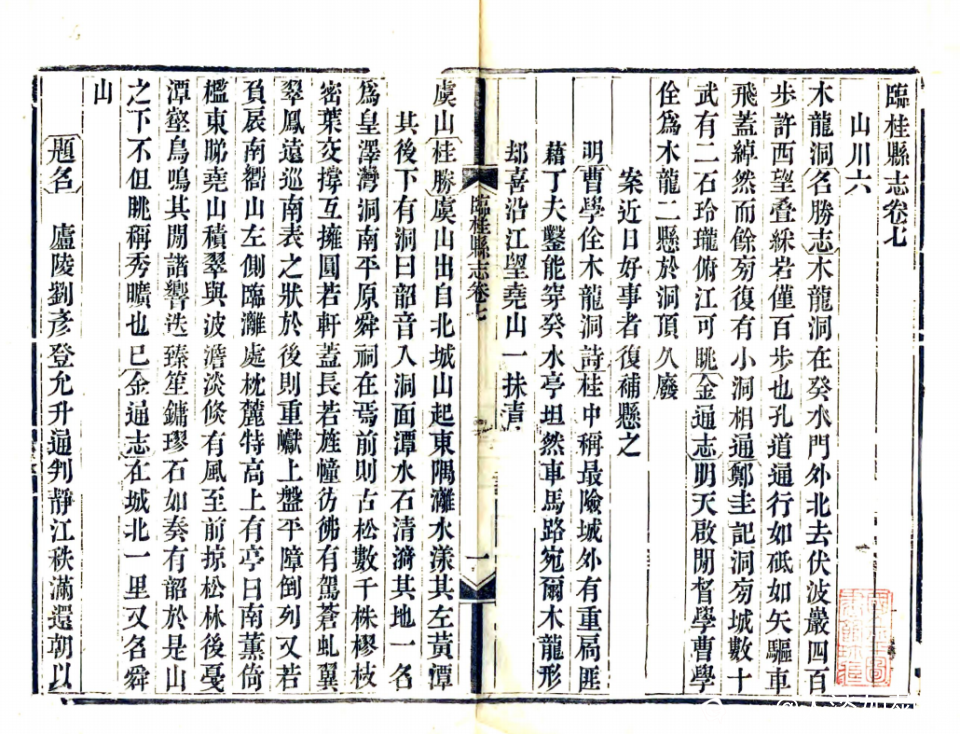 臨桂縣志卷七
山川六
木龍洞名勝志木龍洞在癸水門外北去伏波巖四百
步許西望叠綵岩僅百步也孔道通行如砥如矢驅車
飛蓋綽然而餘旁復有小洞相通鄭圭記洞旁城數十
武有二石玲瓏俯江可眺金通志明天啟閒督學曹學
佺爲木龍二懸於洞頂久廢
案近日好事者復補懸之
明曹學佺木龍洞詩桂中稱最險城外有重扃匪
藉丁夫鑿能穿癸水亭坦然車馬路宛爾木龍形
却喜沿江望堯山一抹青
臨桂縣志卷七
一
虞山桂勝虞山出自北城山起東隅灕水漾其左黃潭
其後下有洞曰韶音入洞面潭水石清漪其地一名
爲皇澤灣洞南平原舜祠在焉前則古松數千株樛枝
密葉交撐互擁圓若軒蓋長若旌幢彷彿有駕蒼虬翼
翠鳳遠巡南表之狀於後則重巘上盤平障倒列又若
負扆南嚮山左側臨灕處枕麓特高上有亭曰南薰倚
檻東睇堯山積翠與波澹淡倏有風至前掠松林後戛
潭壑鳥鳴其閒諸響迭臻笙鏞璆石如奏有韶於是山
之下不但眺稱秀曠也已金通志在城北一里又名舜
山
題名 廬陵劉彥登允升通判靜江秩滿還朝以